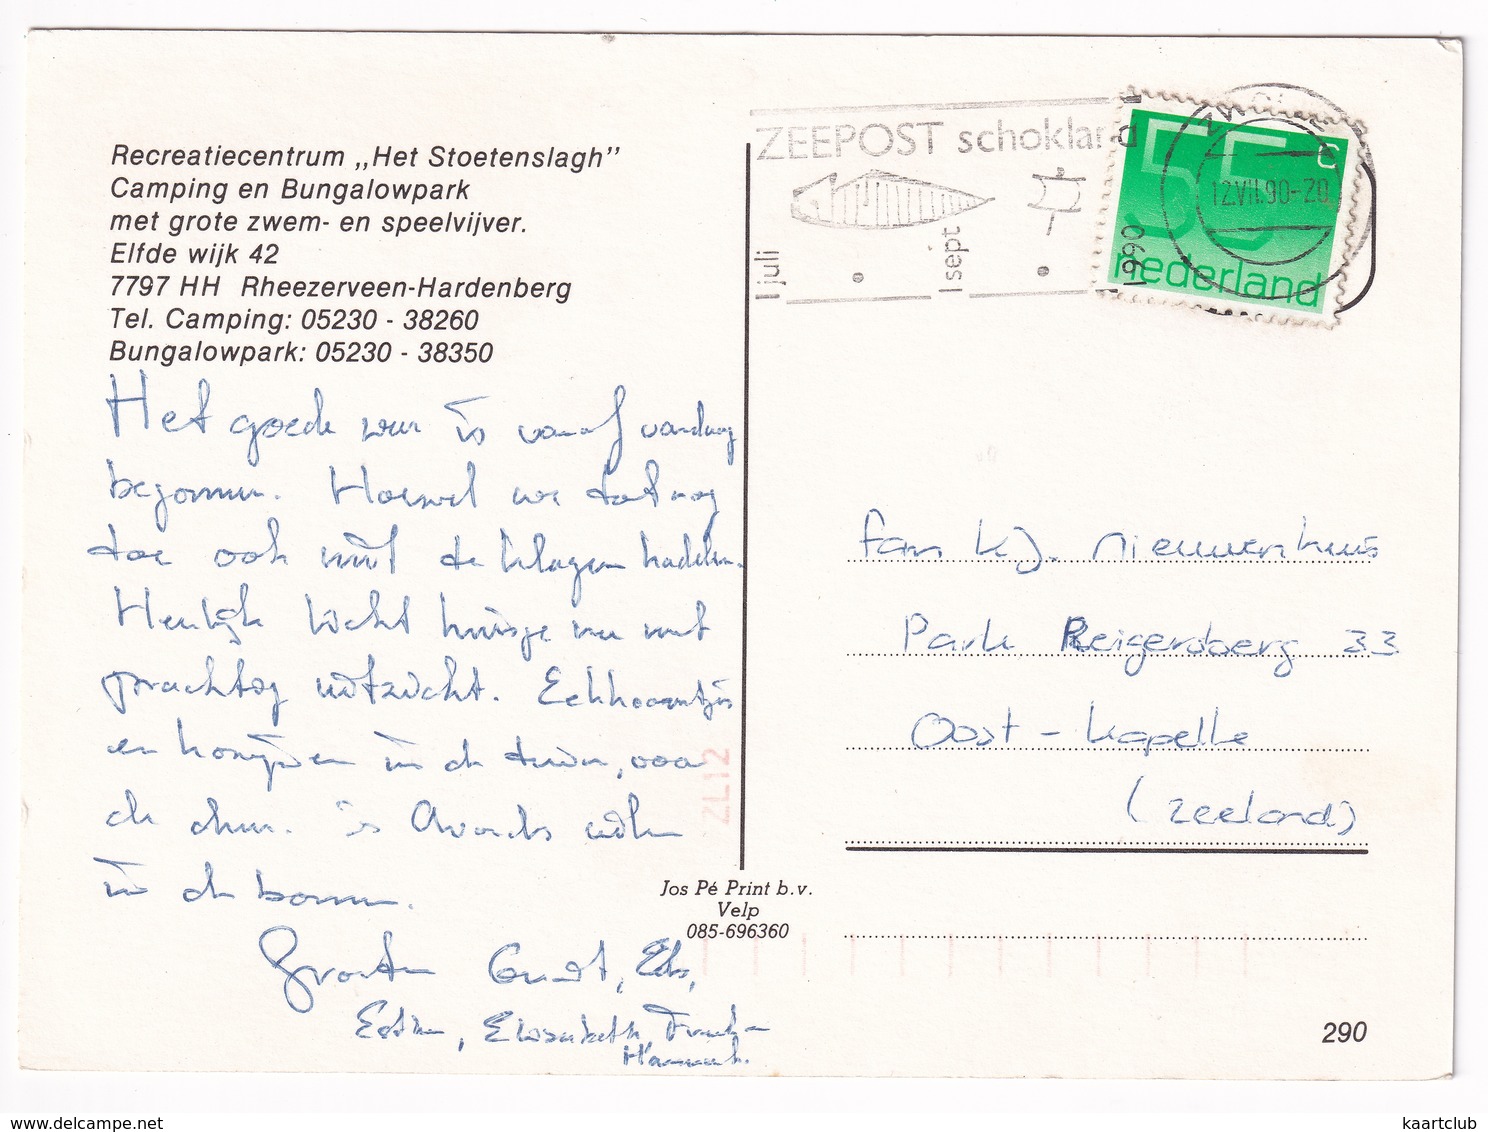 Recreatiecentrum „Het Stoetenslagh"
Camping en Bungalowpark
met grote zwem- en speelvijver.
Elfde wijk 42
7797 HH Rheezerveen-Hardenberg
Tel. Camping: 05230 - 38260
Bungalowpark: 05230 - 38350
Het goede weer is vanaf vandaag
begonnen. Hoewel we tot nog
toe ook niet te klagen hadden.
Heerlijk licht huisje nu met
prachtig uitzicht. Eekhoorntjes
en konijnen in de tuin, voor
de deur. 's Avonds uilen
in de bomen.
Groeten Gundt, Els,
Esther, Elisabeth, Frank-
Hannah.
ZEEPOST schokland
1 juli
1 sept
1990
12.VII.90-20
55 c
nederland
fam K.J. Nieuwenhuis
Park Reigersberg 33
Oost - Kapelle
(Zeeland)
ZL12
Jos Pé Print b.v.
Velp
085-696360
290
kaartclub